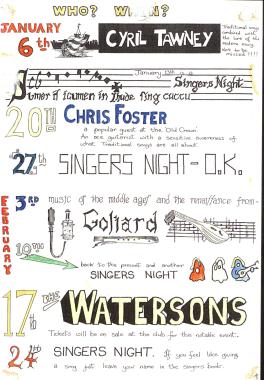 WHO? WHEN?
JANUARY
6th
CYRIL TAWNEY
Traditional songs
combined with
the love of the
modern song.
Not to be
missed !!!!
January 13th
Singers Night
Sumer is icumen in Lhude sing cuccu
20TH
CHRIS FOSTER
a popular guest at the Old Crown.
An ace guitarist with a sensitive awareness of
what Traditional songs are all about.
27th
SINGERS NIGHT - O.K.
FEBRUARY
3RD
music of the middle ages and the renaissance from-
Goliard
10TH
back to the present and another
SINGERS NIGHT
17th
THE
WATERSONS
Tickets will be on sale at the club for this notable event.
24th
SINGERS NIGHT.
If you feel like giving
a song just leave your name in the singers book.